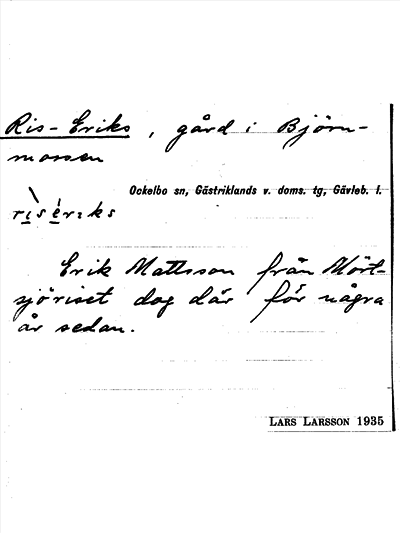 Ris-Eriks, gård i Björn-
mossen
Ockelbo sn, Gästriklands v. doms. tg, Gävleb. l.
rìs érıks
Erik Mattsson från Mört-
sjöriset dog där för några
år sedan.
LARS LARSSON 1935